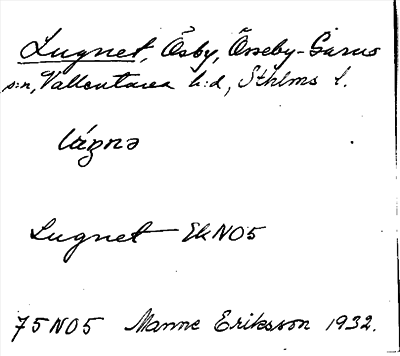 Lugnet, Ösby, Össeby-Garns
s:n, Vallentuna h:d, Sthlms l.
Lugnet EkNO5
75NO5 Manne Eriksson 1932.